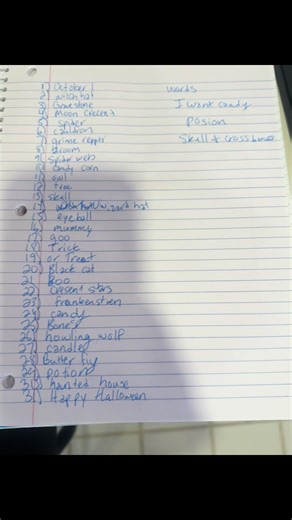 1) October 1
2) witch hat
3) Gravestone
4) Moon Crecent
5) spider
6) cauldron
7) grime repper
8) Broom
9) Spider webs
10) candy corn
11) owl
12) tree
13) skull
14) wizard hat
15) eyeball
16) mummy
17) goo
18) Trick
19) or Treat
20) Black cat
21) Boo
22) Cresent stars
23) Frankenstien
24) candy
25) Bones
26) howling wolf
27) candles
28) Butter fly
29) potion
30) hanted house
31) Happy Halloween
words
I want candy
Posion
Skull + cross bones